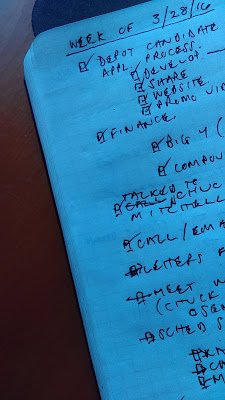 WEEK OF 3/28/16
DEPOT CANDIDATE
APPL. PROCESS.
DEVELOP
SHARE
WEBSITE
PROMO VID
FINANCE.
BIG 4 (
COMPOU
TALKED TO
CALL CHUC
MITCHELL
CALL/EMA
LETTERS F
MEET W
(CHUCK
OSE
SCHED S